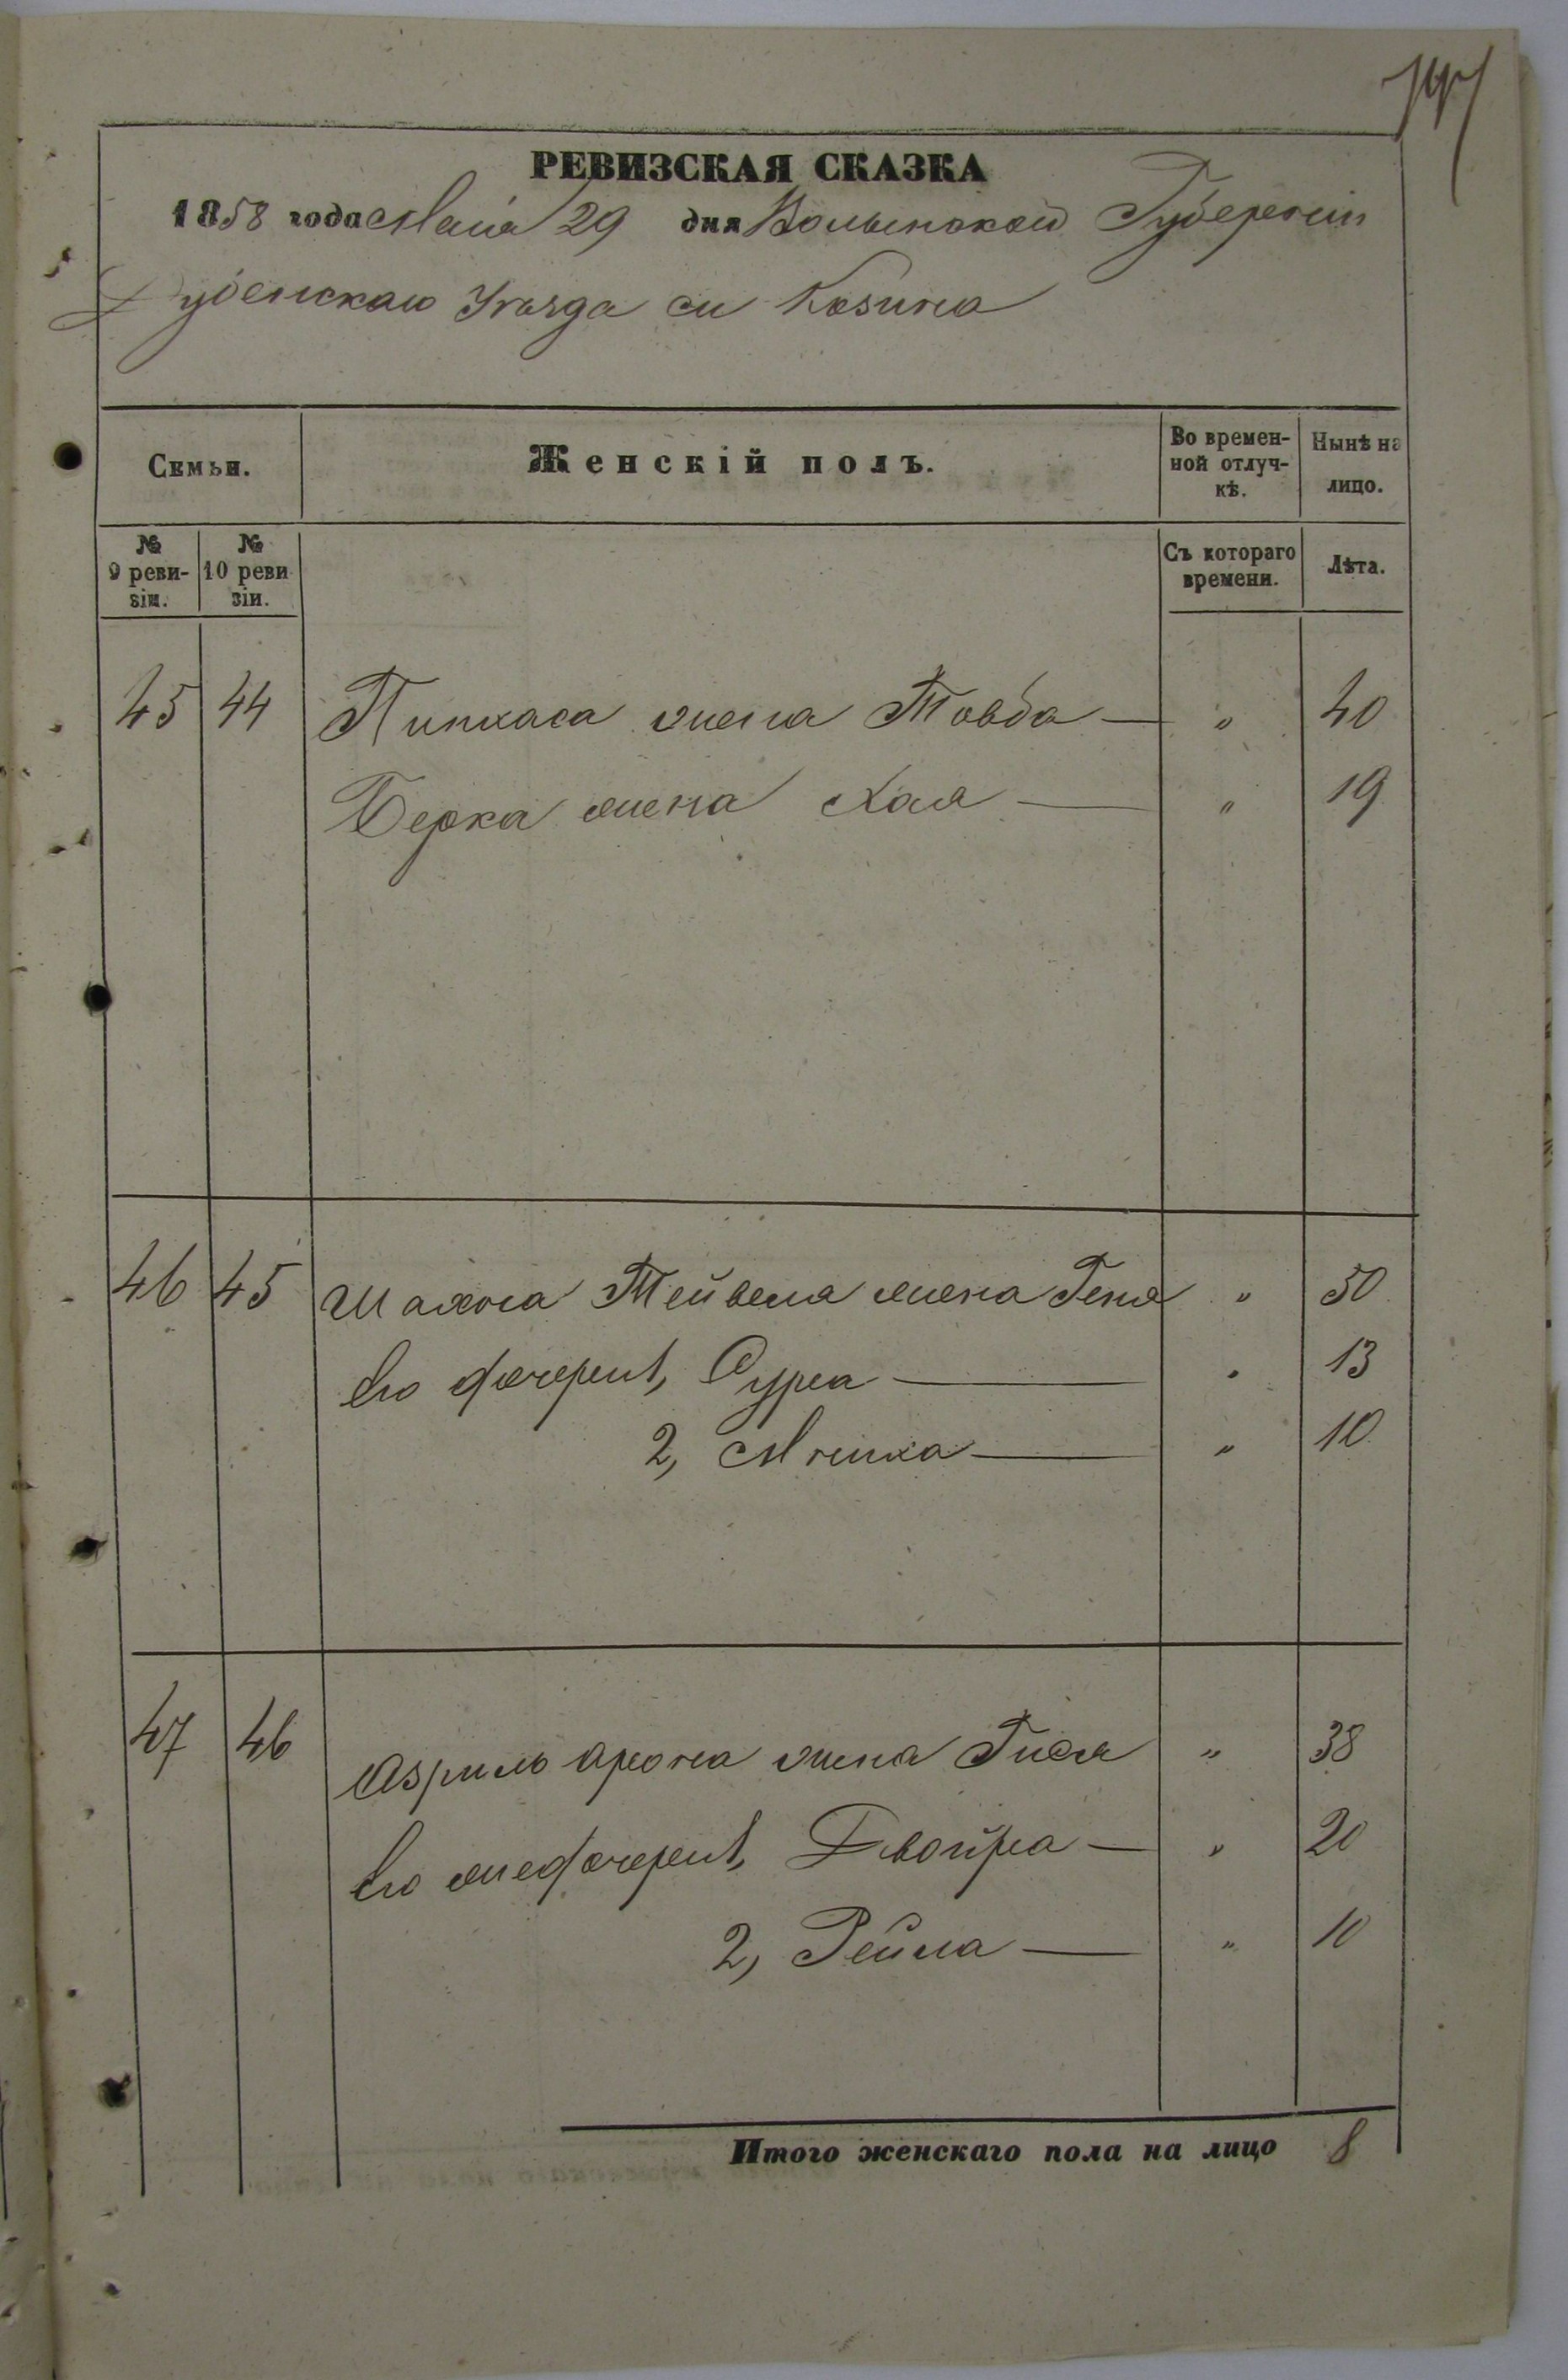 РЕВИЗСКАЯ СКАЗКА
1858 года Маія 29 дня Волынской Губерніи
Дубенскаго Уѣзда м Козина
Семьи. Женскій полъ. Во времен-ной отлуч-кѣ. Нынѣ на лицо.
№ 9 реви-зіи. № 10 реви зіи. Съ котораго времени. Лѣта.
45 44 Пинхаса жена Товба — " 40
Берка жена Хая — " 19
46 45 Шахна Тейвеля жена Геня " 50
Его дочери 1, Сура — " 13
2, — " 10
47 46 Азриль Арона жена Гися " 38
Его же дочери 1, Двойра — " 20
2, Рейла — " 10
Итого женскаго пола на лицо 8